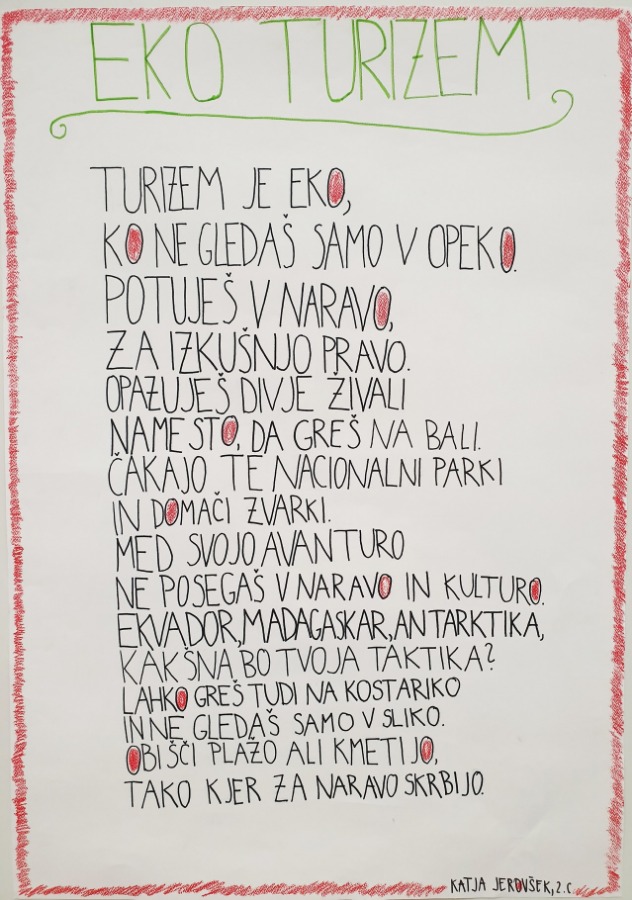 EKO TURIZEM
TURIZEM JE EKO,
KO NE GLEDAŠ SAMO V OPEKO.
POTUJEŠ V NARAVO,
ZA IZKUŠNJO PRAVO.
OPAZUJEŠ DIVJE ŽIVALI
NAMESTO, DA GREŠ NA BALI.
ČAKAJO TE NACIONALNI PARKI
IN DOMAČI ZVARKI.
MED SVOJO AVANTURO
NE POSEGAŠ V NARAVO IN KULTURO.
EKVADOR, MADAGASKAR, ANTARKTIKA,
KAKŠNA BO TVOJA TAKTIKA?
LAHKO GREŠ TUDI NA KOSTARIKO
IN NE GLEDAŠ SAMO V SLIKO.
OBIŠČI PLAŽO ALI KMETIJO,
TAKO KJER ZA NARAVO SKRBIJO.
KATJA JEROVŠEK, 2. C